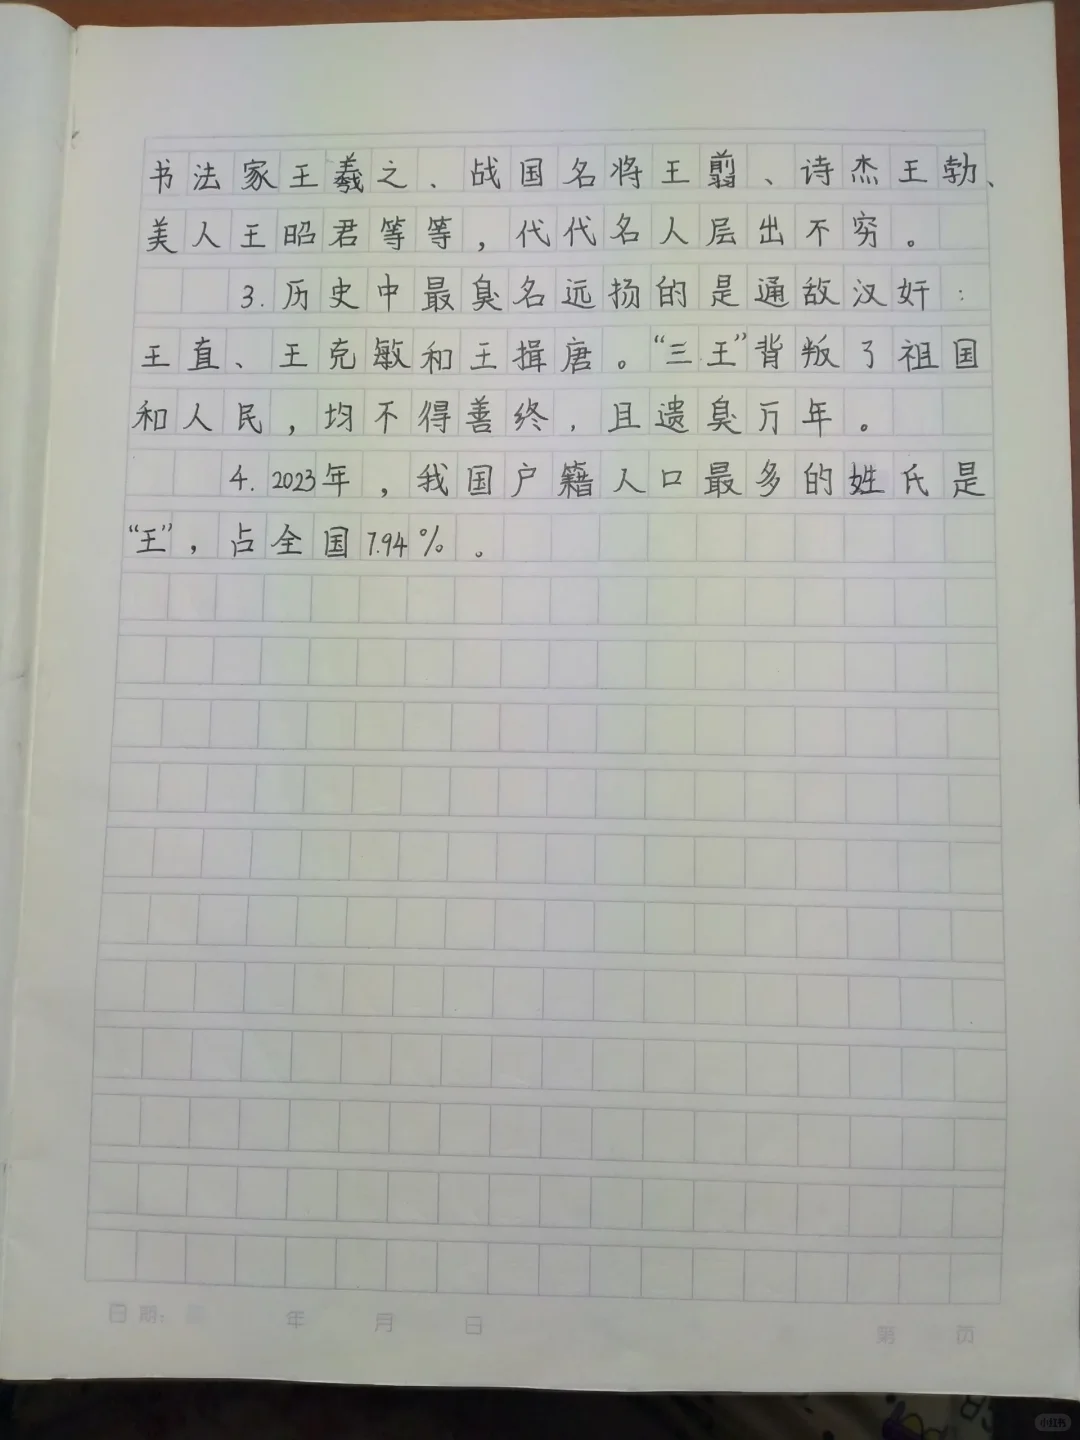 书法家王羲之、战国名将王翦、诗杰王勃、
美人王昭君等等，代代名人层出不穷。
3.历史中最臭名远扬的是通敌汉奸：
王直、王克敏和王揖唐。“三王”背叛了祖国
和人民，均不得善终，且遗臭万年。
4.2023年，我国户籍人口最多的姓氏是
“王”，占全国7.94%。
日期： 年 月 日
第 页
小红书